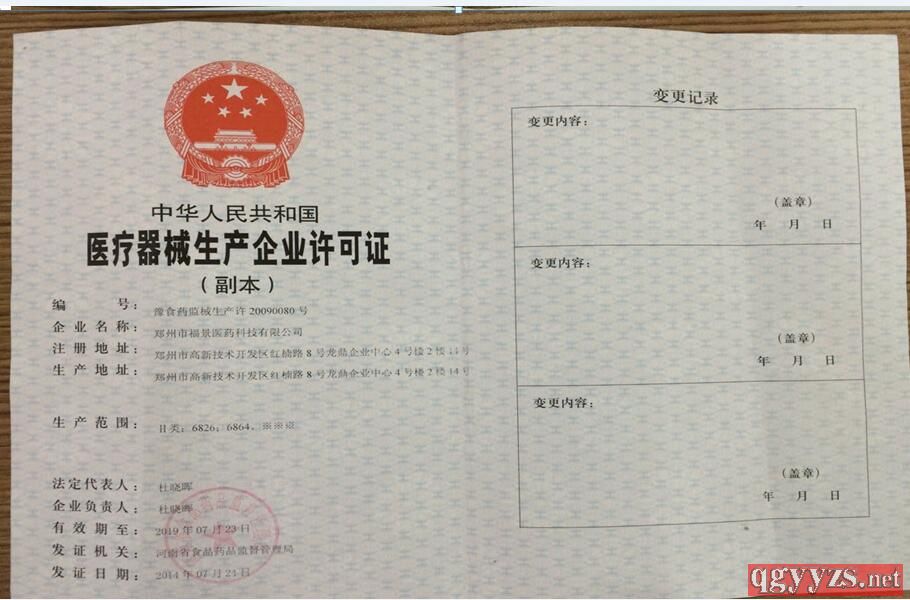 中华人民共和国
医疗器械生产企业许可证
（副本）
编号：豫食药监械生产许20090080号
企业名称：郑州市福景医药科技有限公司
注册地址：郑州市高新技术开发区红楠路8号龙鼎企业中心4号楼2楼14号
生产地址：郑州市高新技术开发区红楠路8号龙鼎企业中心4号楼2楼14号
生产范围：II类：6826；6864。※※※
法定代表人：杜晓晖
企业负责人：杜晓晖
有效期至：2019年07月23日
发证机关：河南省食品药品监督管理局
发证日期：2014年07月24日
变更记录
变更内容：
（盖章）
年 月 日
变更内容：
（盖章）
年 月 日
变更内容：
（盖章）
年 月 日
qgyyzs.net